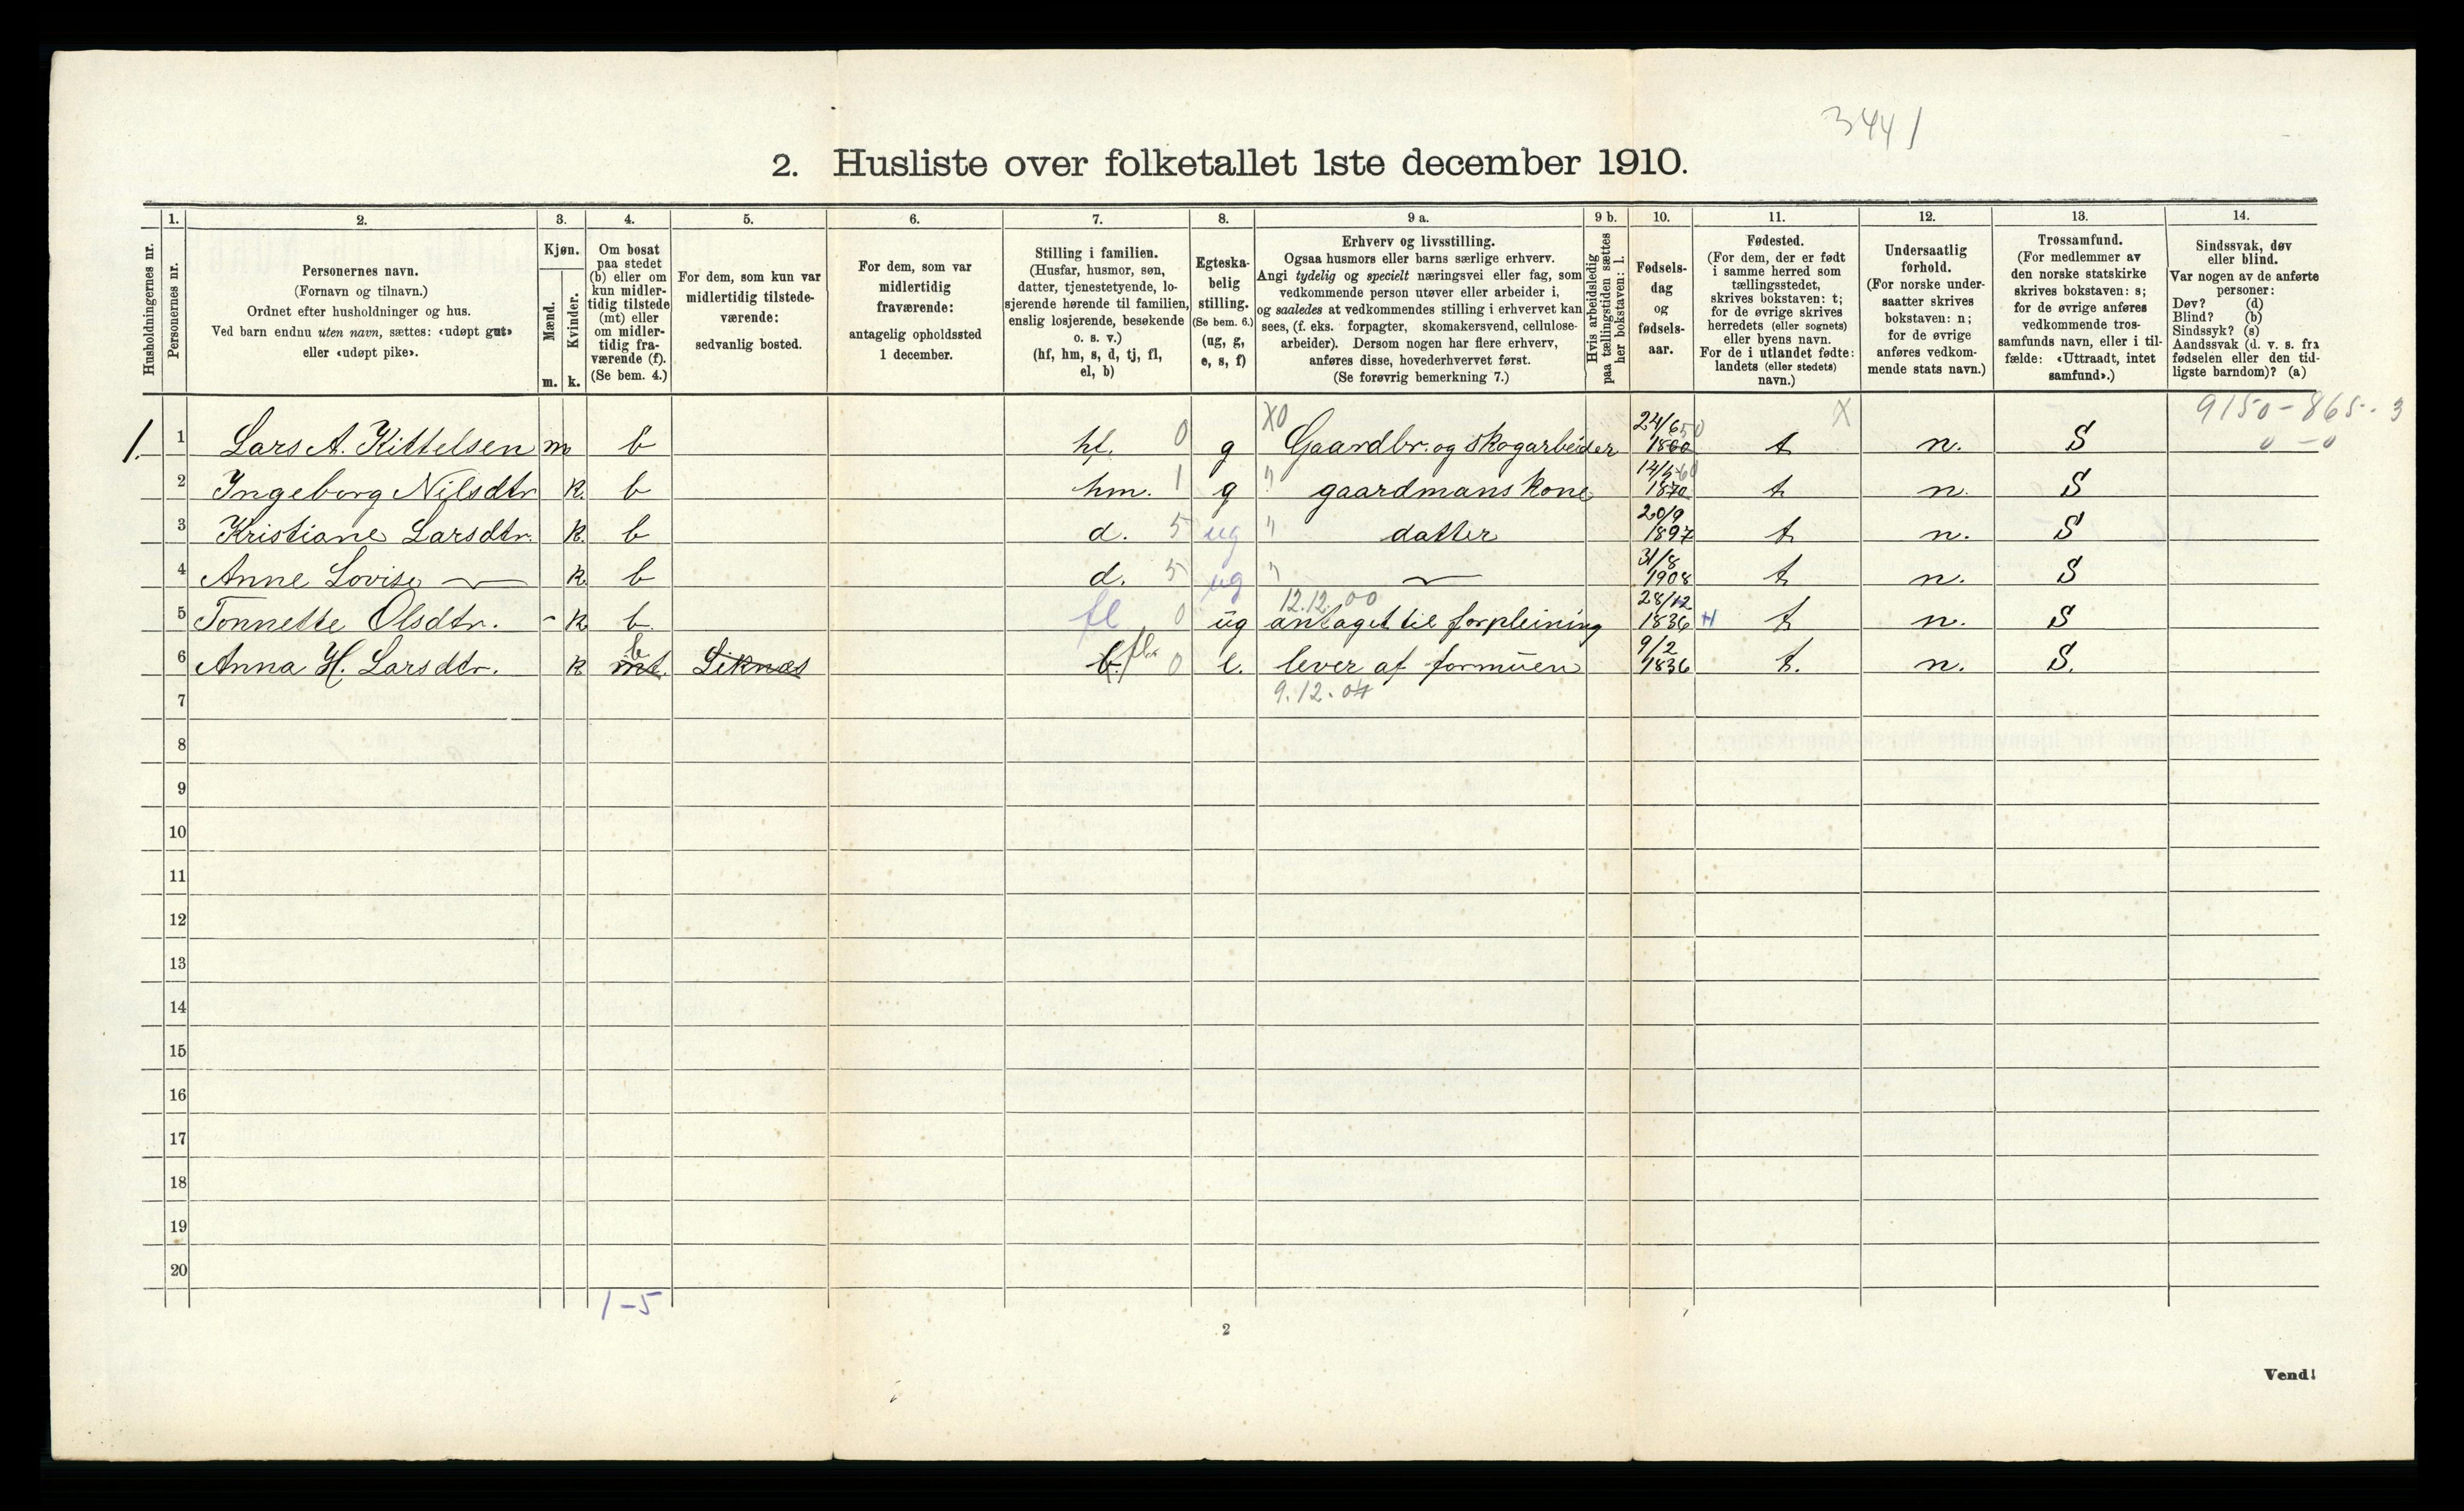 3441
2. Husliste over folketallet 1ste december 1910.
Husholdningernes nr.
1.
Personernes nr.
2.
Personernes navn.
(Fornavn og tilnavn.)
Ordnet efter husholdninger og hus.
Ved barn endnu uten navn, sættes: «udøpt gut»
eller «udøpt pike».
3.
Kjøn.
Mænd.
Kvinder.
m. k.
4.
Om bosat
paa stedet
(b) eller om
kun midler-
tidig tilstede
(mt) eller
om midler-
tidig fra-
værende (f).
(Se bem. 4.)
5.
For dem, som kun var
midlertidig tilstede-
værende:
sedvanlig bosted.
6.
For dem, som var
midlertidig
fraværende:
antagelig opholdssted
1 december.
7.
Stilling i familien.
(Husfar, husmor, søn,
datter, tjenestetyende, lo-
sjerende hørende til familien,
enslig losjerende, besøkende
o. s. v.)
(hf, hm, s, d, tj, fl,
el, b)
8.
Egteska-
belig
stilling.
(Se bem. 6.)
(ug, g,
e, s, f)
9 a.
Erhverv og livsstilling.
Ogsaa husmors eller barns særlige erhverv.
Angi tydelig og specielt næringsvei eller fag, som
vedkommende person utøver eller arbeider i,
og saaledes at vedkommendes stilling i erhvervet kan
sees, (f. eks. forpagter, skomakersvend, cellulose-
arbeider). Dersom nogen har flere erhverv,
anføres disse, hovederhvervet først.
(Se forøvrig bemerkning 7.)
9 b.
Hvis arbeidsledig
paa tællingstiden sættes
her bokstaven: l.
10.
Fødsels-
dag
og
fødsels-
aar.
11.
Fødested.
(For dem, der er født
i samme herred som
tællingsstedet,
skrives bokstaven: t;
for de øvrige skrives
herredets (eller sognets)
eller byens navn.
For de i utlandet fødte:
landets (eller stedets)
navn.)
12.
Undersaatlig
forhold.
(For norske under-
saatter skrives
bokstaven: n;
for de øvrige
anføres vedkom-
mende stats navn.)
13.
Trossamfund.
(For medlemmer av
den norske statskirke
skrives bokstaven: s;
for de øvrige anføres
vedkommende tros-
samfunds navn, eller i til-
fælde: «Uttraadt, intet
samfund».)
14.
Sindssvak, døv
eller blind.
Var nogen av de anførte
personer:
Døv? (d)
Blind? (b)
Sindssyk? (s)
Aandssvak (d. v. s. fra
fødselen eller den tid-
ligste barndom)? (a)
X0 X 9150-865-3
1. 1 Lars A. Kittelsen m b hf. 0 g Gaardbr. og skogarbeider 24/6 1860 t n. S 0-0
2 Ingeborg Nilsdtr k. b hm. 1 g " gaardmans kone 1870 t n. S
3 Kristiane Larsdtr. k. b d. 5 ug " datter 20/9 1897 t n. S
4 Anne Lovise — k. b d. 5 ug " — 31/8 1908 t n. S
12.12.00
5 Tonnette Olsdtr. - k b. fl 0 ug antaget til forpleining 28/12 1836 t n. S
6 Anna H. Larsdtr. k mt. b Liknes b. fl. 0 e. lever af formuen 9/2 1836 t. n. S.
7 9.12.04
8
9
10
11
12
13
14
15
16
17
18
19
20
1-5
2
Vend!